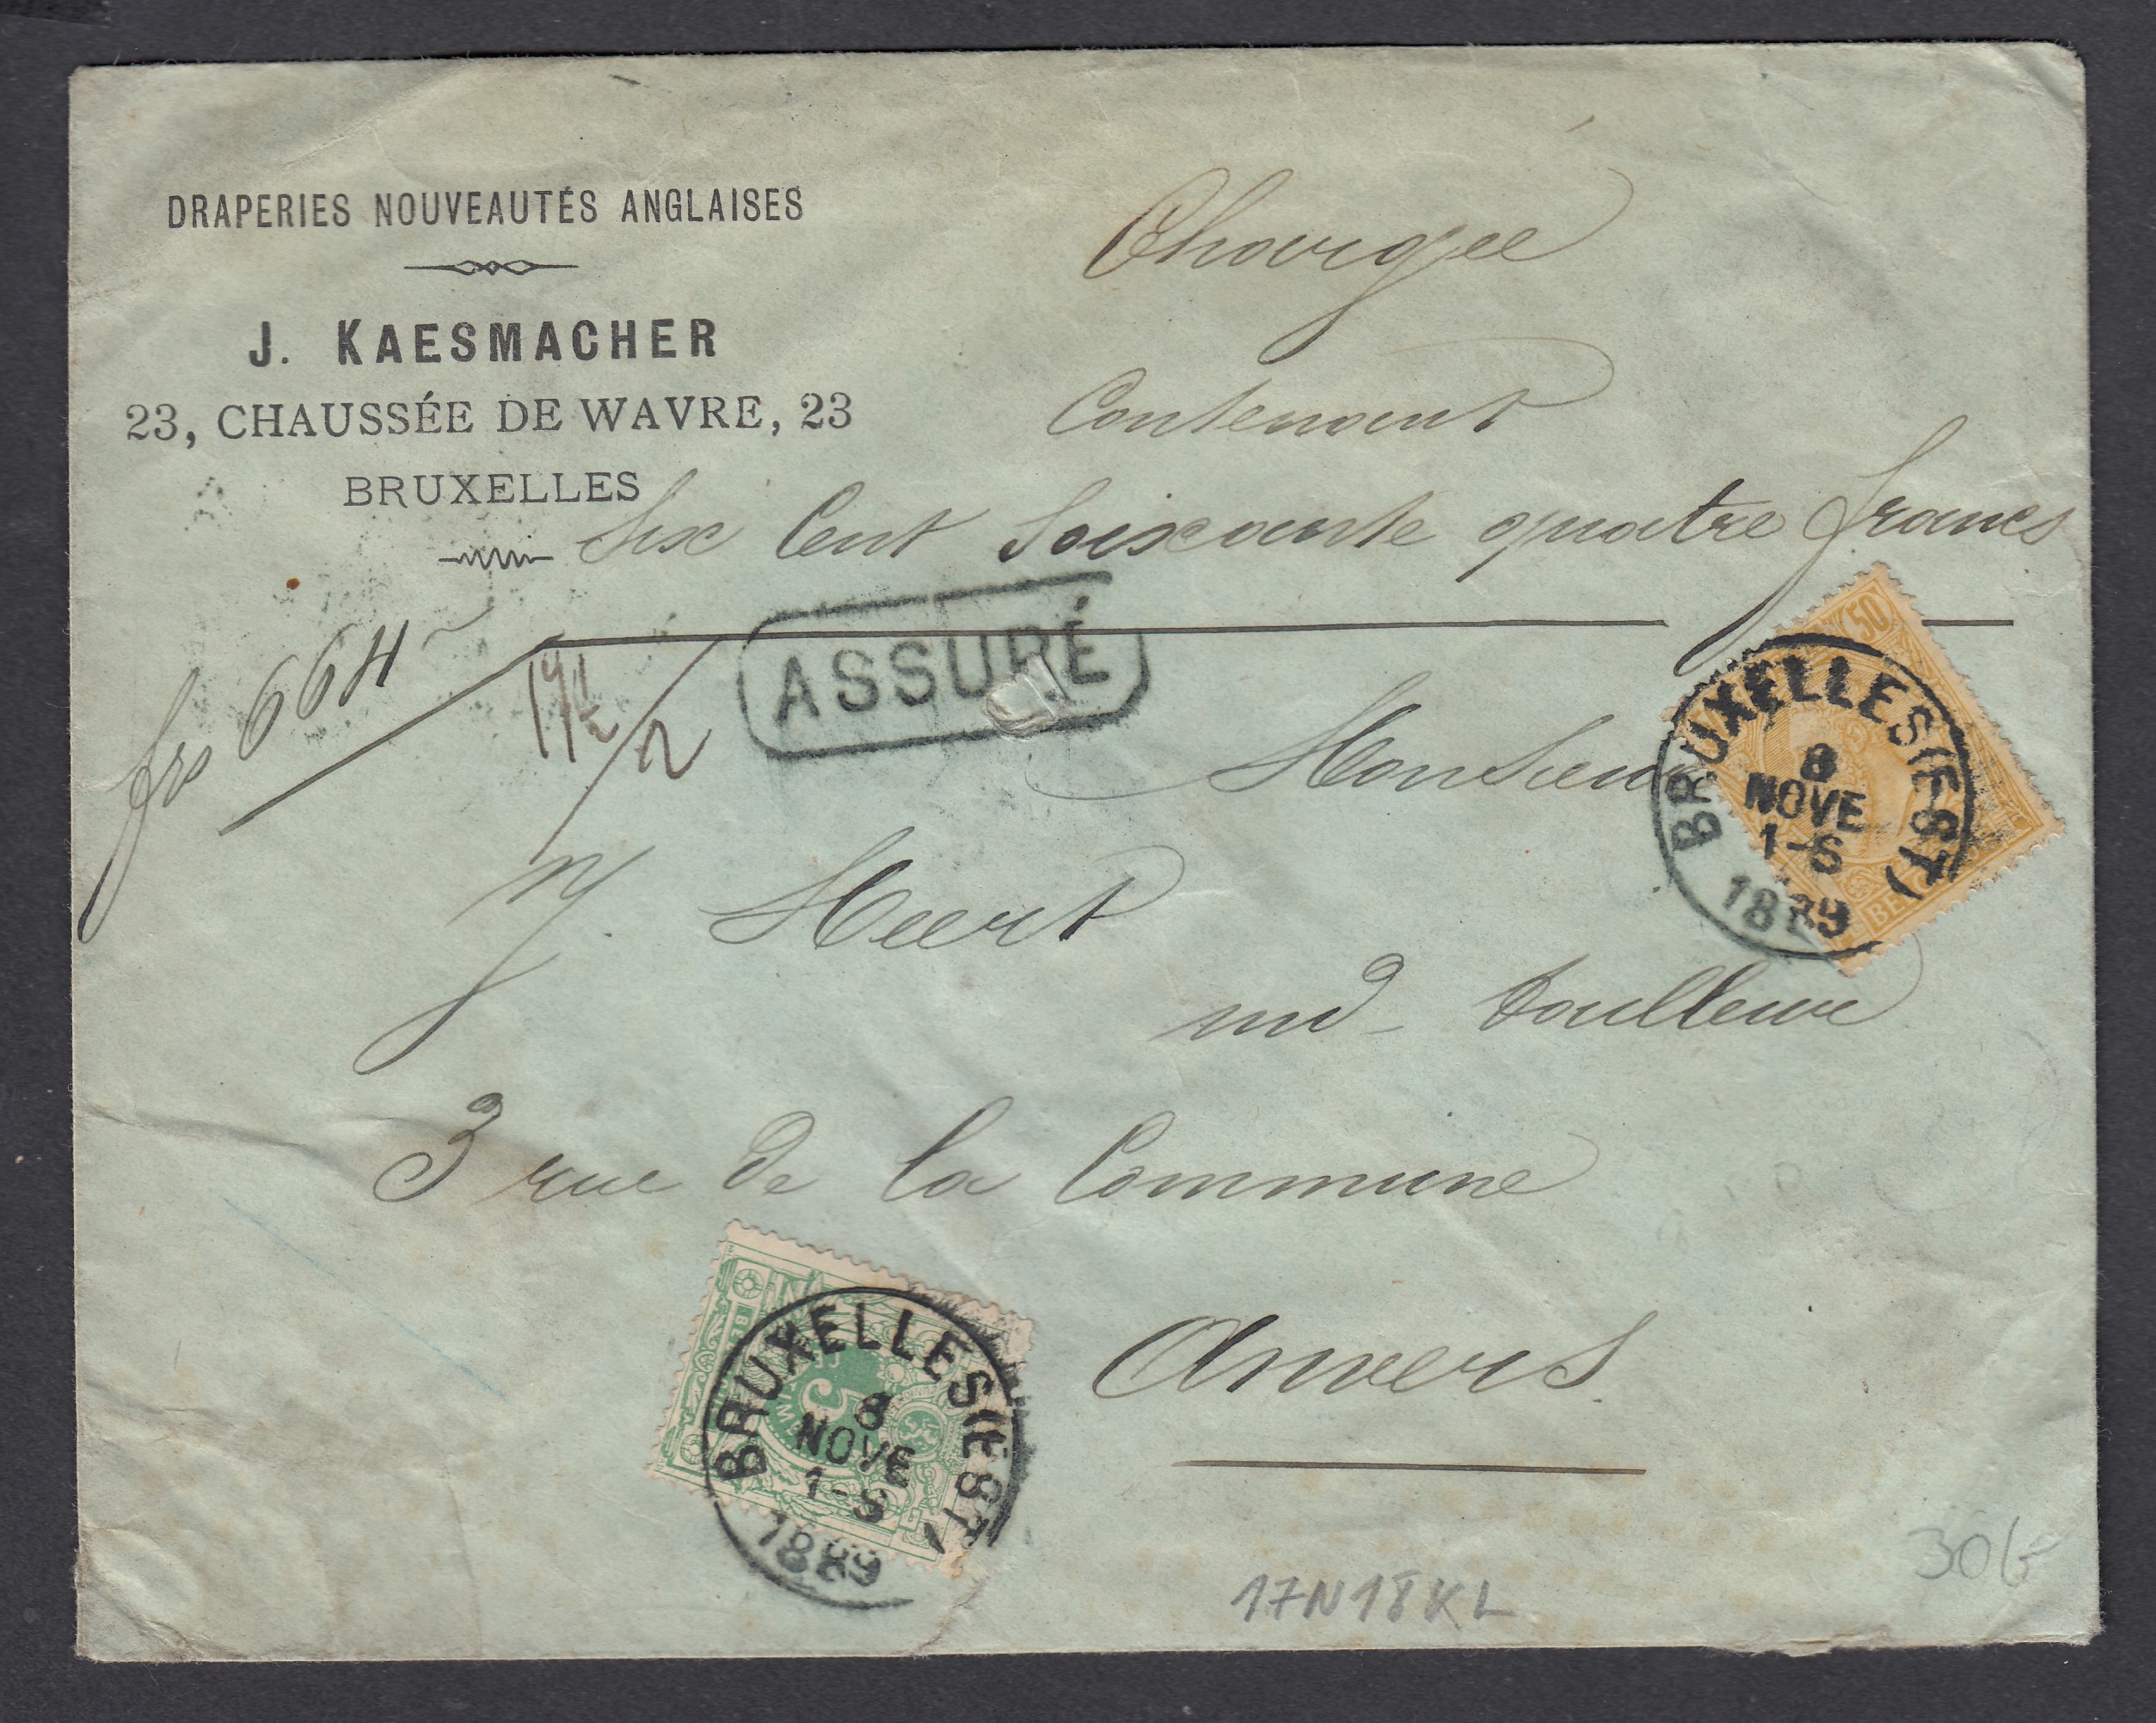 DRAPERIES NOUVEAUTÉS ANGLAISES
J. KAESMACHER
23, CHAUSSÉE DE WAVRE, 23
BRUXELLES
Chargée
Contenant
Six Cent Soixante quatre francs
frs 664
ASSURÉ
Monsieur
Heert
md tailleur
3 rue de la Commune
Anvers
50
BRUXELLES (EST)
8
NOVE
1-S
1889
5
BRUXELLES (EST)
8
NOVE
1-S
1889
17N18KL